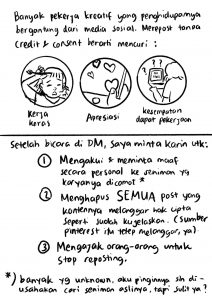 Banyak pekerja kreatif yang penghidupannya
bergantung dari media sosial. Merepost tanpa
credit & consent berarti mencuri :
Kerja
keras
Apresiasi
kesempatan
dapat pekerjaan
Setelah bicara di DM, saya minta karin utk:
1 Mengakui & meminta maaf
secara personal ke seniman yg
karyanya dicomot *)
2 Menghapus SEMUA post yang
kontennya melanggar hak cipta
seperti sudah kujelaskan. (sumber
pinterest itu tetep melanggar, ya)
3 Mengajak orang-orang untuk
stop reposting.
*) banyak yg unknown, aku pinginnya sih di-
usahakan cari seniman aslinya, tapi sulit ya?